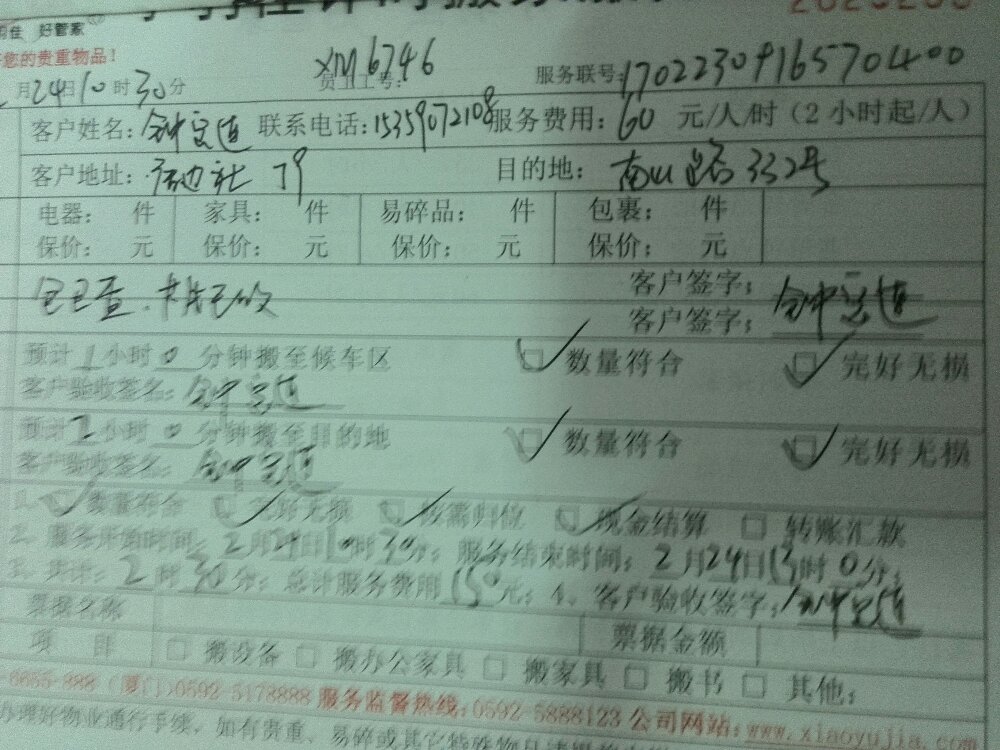 好管家
您的贵重物品！
月24日10时30分 XM6746 服务联号：1702230916570400
客户姓名： 联系电话：15359072108 服务费用：60元/人/时（2小时起/人）
客户地址： 目的地：南山路332号
电器： 件 家具： 件 易碎品： 件 包裹： 件
保价： 元 保价： 元 保价： 元 保价： 元
客户签字：
客户签字：
预计1小时0分钟搬至候车区 ☑ 数量符合 ☑ 完好无损
客户验收签名：
预计2小时0分钟搬至目的地 ☑ 数量符合 ☑ 完好无损
客户验收签名：
1. ☑ 数量符合 ☑ 完好无损 ☑ 按需归位 ☑ 现金结算 ☐ 转账汇款
2. 服务开始时间：2月24日10时30分；服务结束时间：2月24日13时0分；
3. 共计：2时30分；总计服务费用150元；4、客户验收签字：
票据名称 票据金额
项目 ☐ 搬设备 ☐ 搬办公家具 ☐ 搬家具 ☐ 搬书 ☐ 其他：
-6655-888（厦门）0592-5178888 服务监督热线：0592-5888123 公司网站：www.xiaoyujia.com
办理好物业通行手续，如有贵重、易碎或其它特殊物品